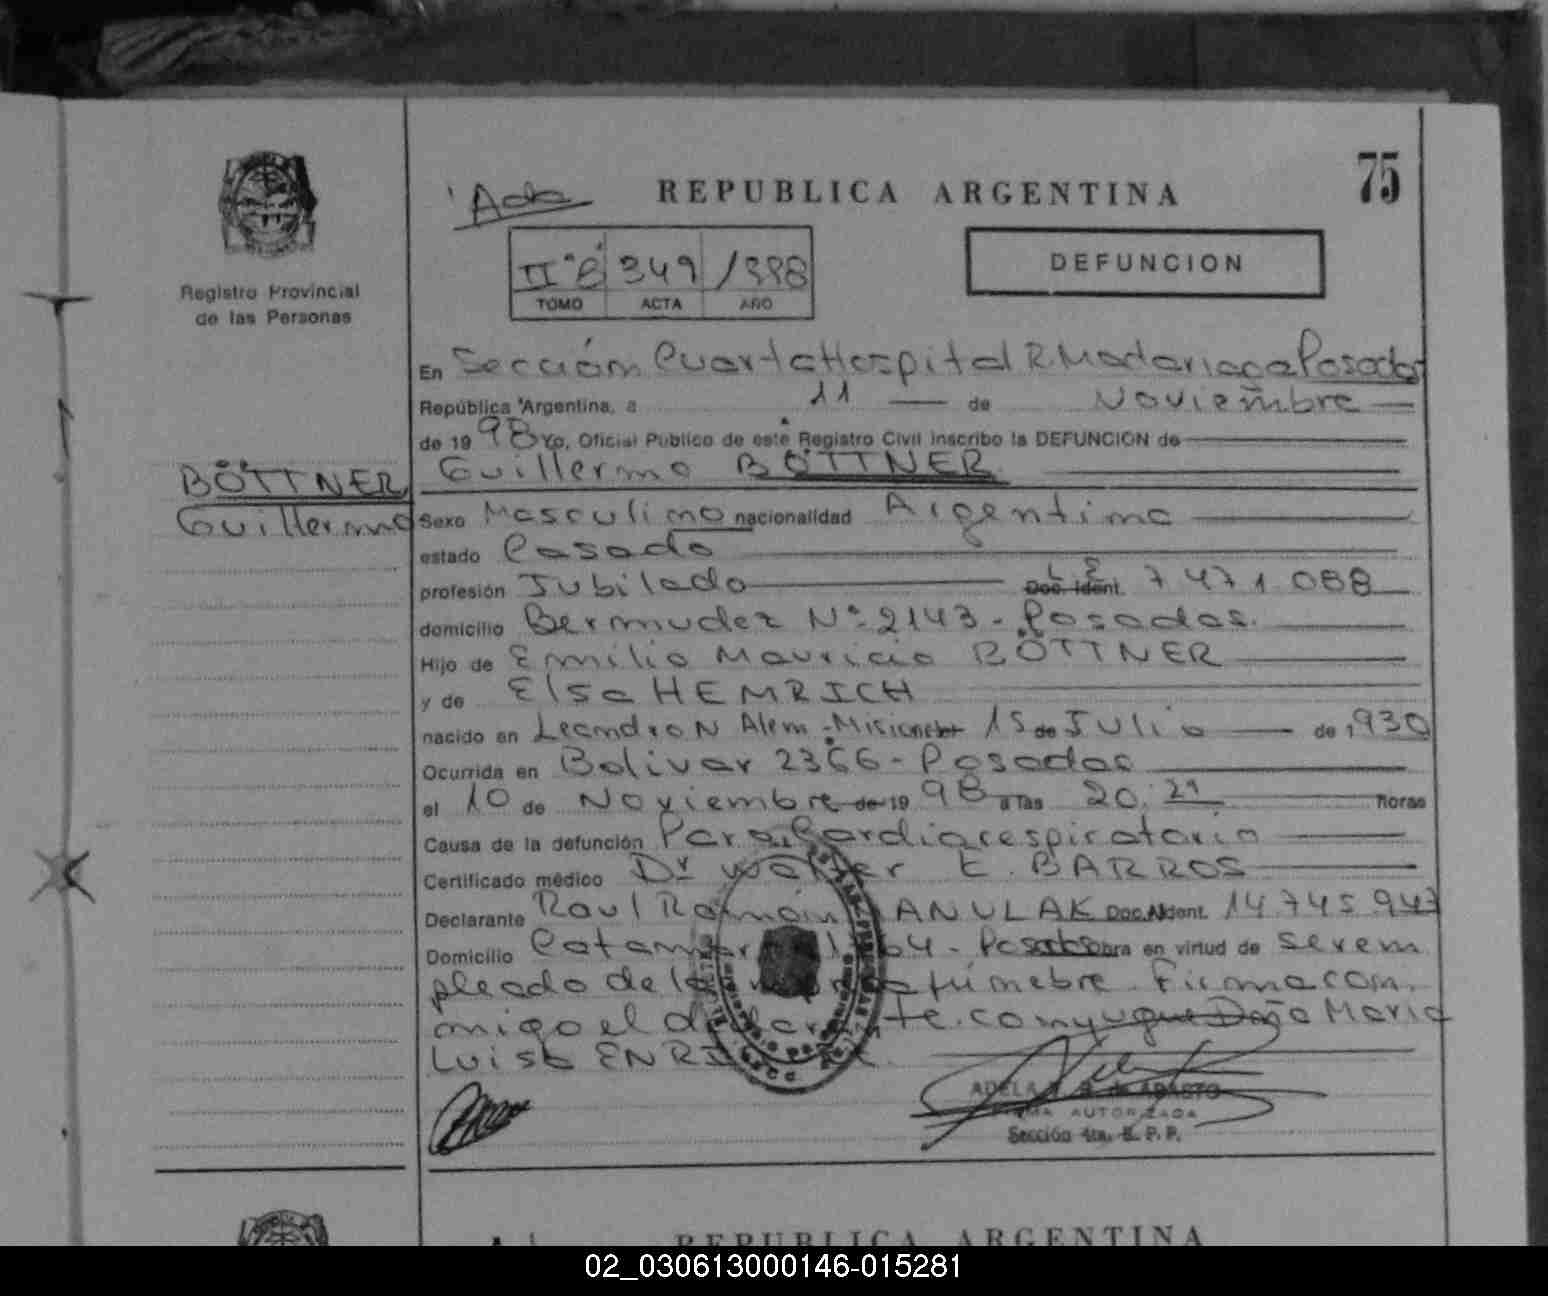 75
REPUBLICA ARGENTINA
Registro Provincial
de las Personas
II°B 349 1998
TOMO ACTA AÑO
DEFUNCION
En Sección Cuarta Hospital R. Madariaga Posadas
República Argentina, a 11 de Noviembre
de 1998 Yo, Oficial Público de este Registro Civil inscribo la DEFUNCION de
Guillermo BÖTTNER
BÖTTNER
Guillermo
Sexo Masculino nacionalidad Argentina
estado Casado
profesión Jubilado Doc. Ident. L E 7 471 088
domicilio Bermudez N° 2143 - Posadas.
Hijo de Emilio Mauricio BÖTTNER
y de Elsa HEMRICH
nacido en Leandro N Alem - Misiones el 15 de Julio de 1930
Ocurrida en Bolivar 2366 - Posadas
el 10 de Noviembre de 1998 a las 20:29 horas
Causa de la defunción Paro Cardiorespiratorio
Certificado médico Dr Walter E. BARROS
Declarante Raul Ramón ANULAK Doc. Ident. 14.745.947
Domicilio - Posadas obra en virtud de ser em
pleado de la fúnebre. Firma con
migo el conyugue Doña Maria
Luisa
ADELA de
FIRMA AUTORIZADA
Sección 4ta. R. P. P.
REPUBLICA ARGENTINA
02_030613000146-015281